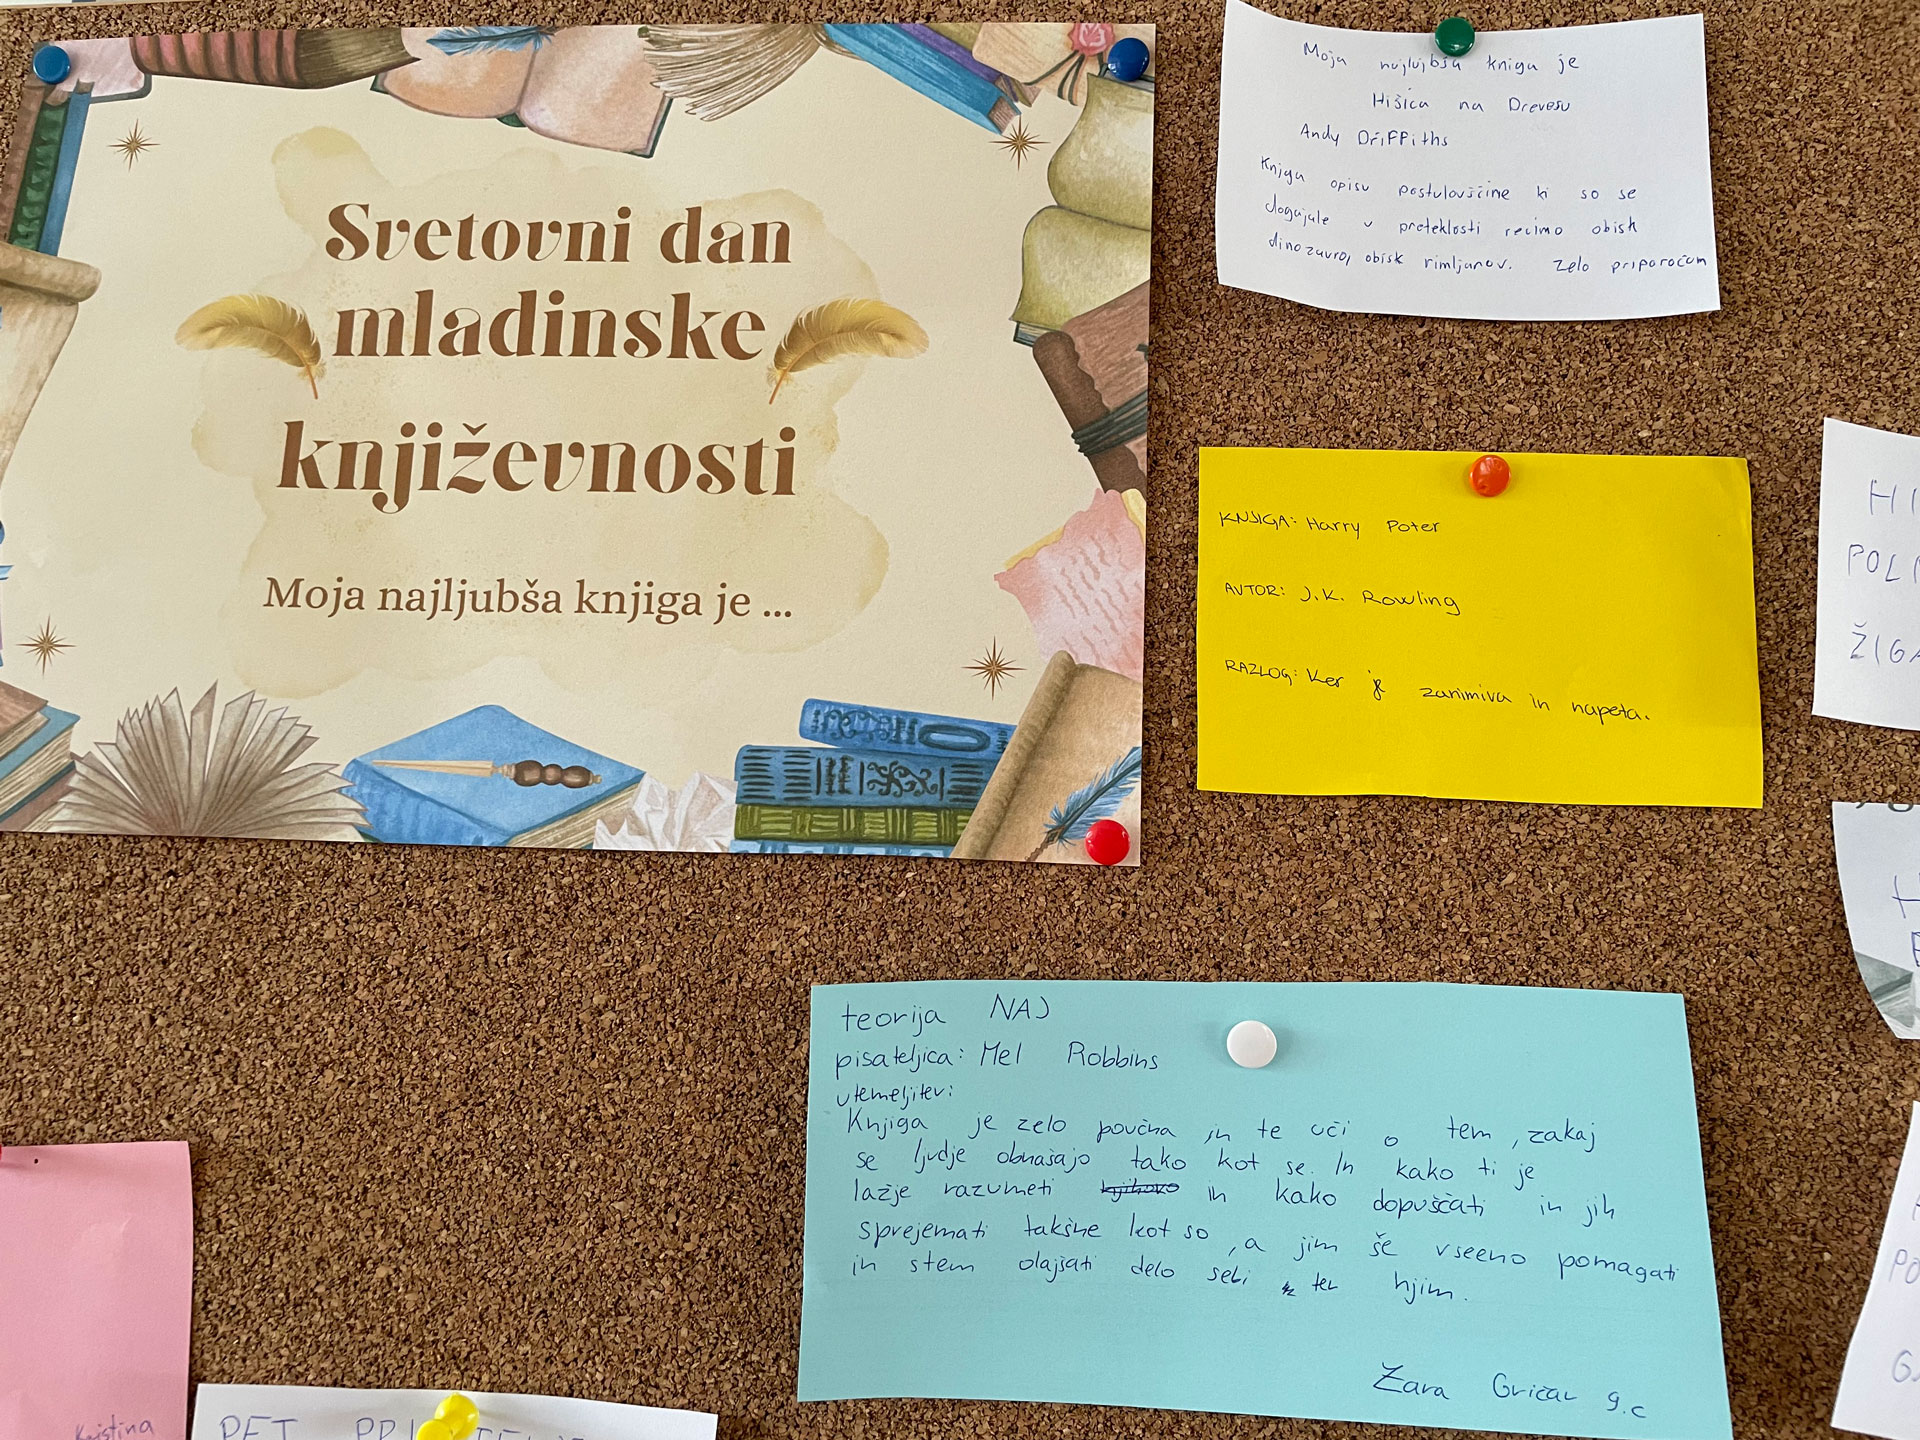 Svetovni dan
mladinske
književnosti
Moja najljubša knjiga je ...
Moja najlujbša kniga je
Hišica na Drevesu
Andy Driffiths
Knjiga opisu pustulovščine ki so se
dogajale v preteklosti recimo obisk
dinozavrov, obisk rimljanov. Zelo priporočam
KNJIGA: Harry Poter
AVTOR: J.K. Rowling
RAZLOG: Ker je zanimiva in napeta.
teorija NAJ
pisateljica: Mel Robbins
utemeljitev:
Knjiga je zelo poučna in te uči o tem, zakaj
se ljudje obnašajo tako kot se. In kako ti je
lažje razumeti in kako dopuščati in jih
sprejemati takšne kot so, a jim še vseeno pomagati
in stem olajšati delo sebi ter njim.
Zara Gričar 9.c
HI
POL
ŽIGA
Kristina
PET PRI